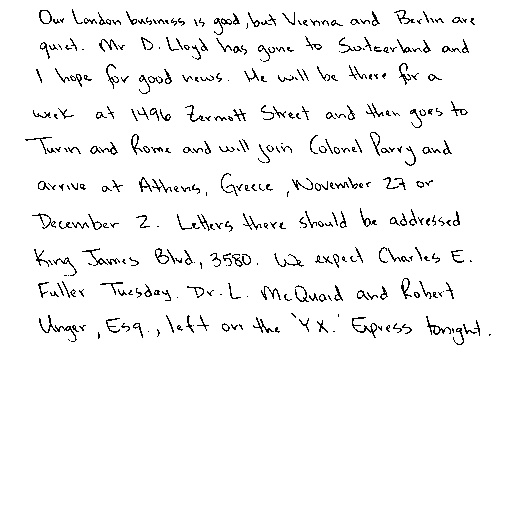 Our London business is good, but Vienna and Berlin are
quiet. Mr D. Lloyd has gone to Switzerland and
I hope for good news. He will be there for a
week at 1496 Zermott Street and then goes to
Turin and Rome and will join Colonel Parry and
arrive at Athens, Greece, November 27 or
December 2. Letters there should be addressed
King James Blvd., 3580. We expect Charles E.
Fuller Tuesday. Dr. L. McQuaid and Robert
Unger, Esq., left on the 'Y X.' Express tonight.